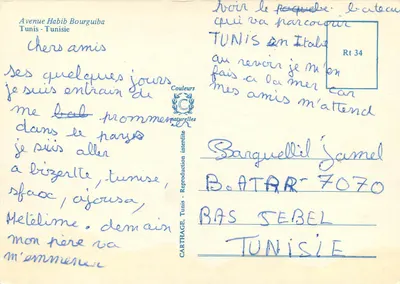 Avenue Habib Bourguiba
Tunis - Tunisie
chers amis
ses quelques jours
je suis entrain de
me bal prommener
dans le pays
je suis aller
a bizertte, tunise,
sfax, ajousa,
Metelime. demain
mon père va
m'emmener
voir le paquebe bateau
qui va parcourir
TUNIS en Italie
au revoir je m'en
fais a la mer car
mes amis m'attend
Rt 34
Couleurs
C
naturelles
CARTHAGE, Tunis - Reproduction interdite
Barguellil Jamel
B.ATAR-7070
RAS JEBEL
TUNISIE